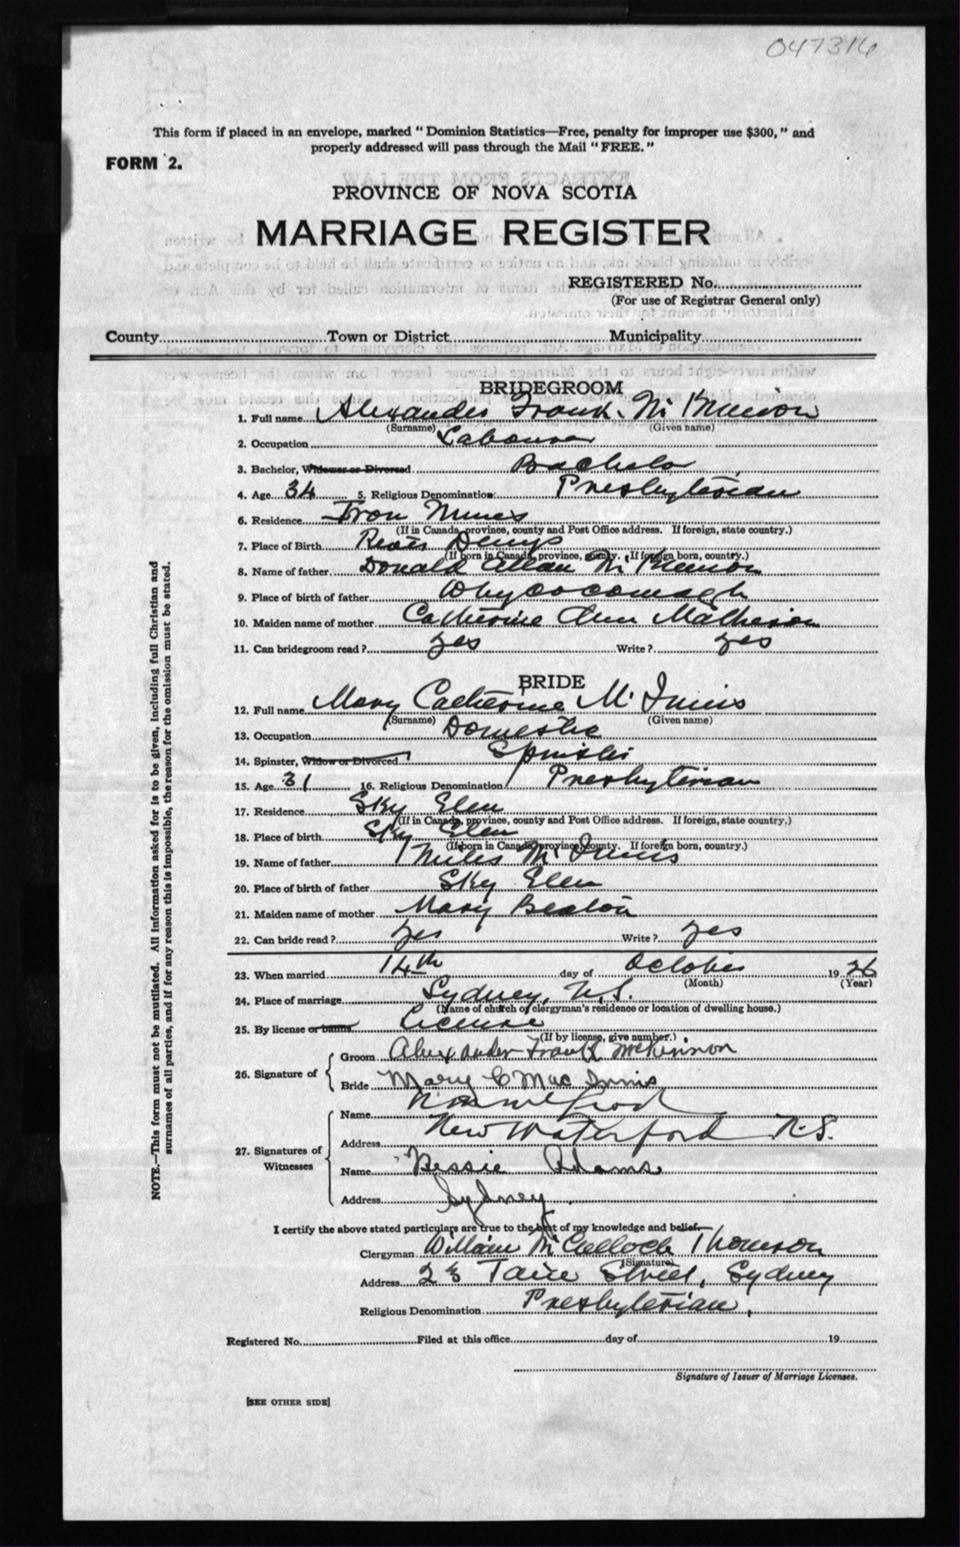 047316
This form if placed in an envelope, marked "Dominion Statistics—Free, penalty for improper use $300," and
properly addressed will pass through the Mail "FREE."
FORM 2.
PROVINCE OF NOVA SCOTIA
MARRIAGE REGISTER
REGISTERED No.
(For use of Registrar General only)
County Town or District Municipality
BRIDEGROOM
1. Full name Alexander Frank McKinnon
(Surname) (Given name)
2. Occupation Labourer
3. Bachelor, Widower or Divorced Bachelor
4. Age 34 5. Religious Denomination: Presbyterian
6. Residence Iron Mines
(If in Canada, province, county and Post Office address. If foreign, state country.)
7. Place of Birth River Denys
(If born in Canada, province, county. If foreign born, country.)
8. Name of father Donald Allan McKinnon
9. Place of birth of father Whycocomagh
10. Maiden name of mother Catherine Ann Matheson
11. Can bridegroom read? yes Write? yes
BRIDE
12. Full name Mary Catherine McInnis
(Surname) (Given name)
13. Occupation Domestic
14. Spinster, Widow or Divorced Spinster
15. Age 31 16. Religious Denomination Presbyterian
17. Residence Sky Glen
(If in Canada, province, county and Post Office address. If foreign, state country.)
18. Place of birth Sky Glen
(If born in Canada, province, county. If foreign born, country.)
19. Name of father Miles McInnis
20. Place of birth of father Sky Glen
21. Maiden name of mother Mary Beaton
22. Can bride read? yes Write? yes
23. When married 14th day of October 1926
(Month) (Year)
24. Place of marriage Sydney, N.S.
(Name of church or clergyman's residence or location of dwelling house.)
25. By license or banns License
(If by license, give number.)
26. Signature of Groom Alexander Frank McKinnon
Bride Mary C MacInnis
27. Signatures of Witnesses
Name
Address New Waterford N.S.
Name Bessie Adams
Address Sydney
I certify the above stated particulars are true to the best of my knowledge and belief.
Clergyman William McCulloch Thomson
(Signature)
Address 23 Street, Sydney
Religious Denomination Presbyterian,
Registered No. Filed at this office day of 19
Signature of Issuer of Marriage Licenses.
[SEE OTHER SIDE]
NOTE.—This form must not be mutilated. All information asked for is to be given, including full Christian and
surnames of all parties, and if for any reason this is impossible, the reason for the omission must be stated.